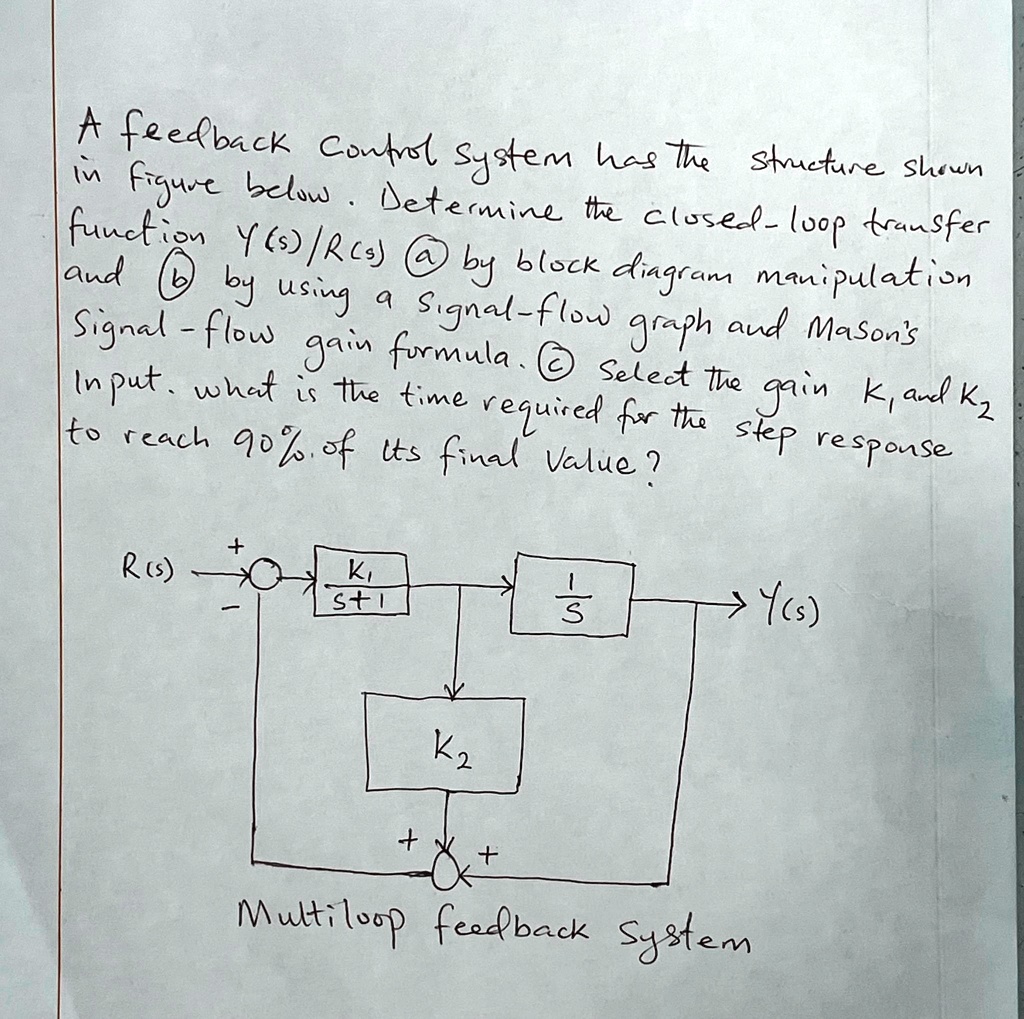 A feedback Control System has the structure shown
in figure below. Determine the closed-loop transfer
function Y(s)/R(s) ⓐ by block diagram manipulation
and ⓑ by using a Signal-flow graph and Mason's
Signal-flow gain formula. ⓒ Select the gain K₁ and K₂
Input. what is the time required for the step response
to reach 90%. of its final Value?
R(s) + - K₁ / S+1 1 / S Y(s)
K₂
+ +
Multiloop feedback System